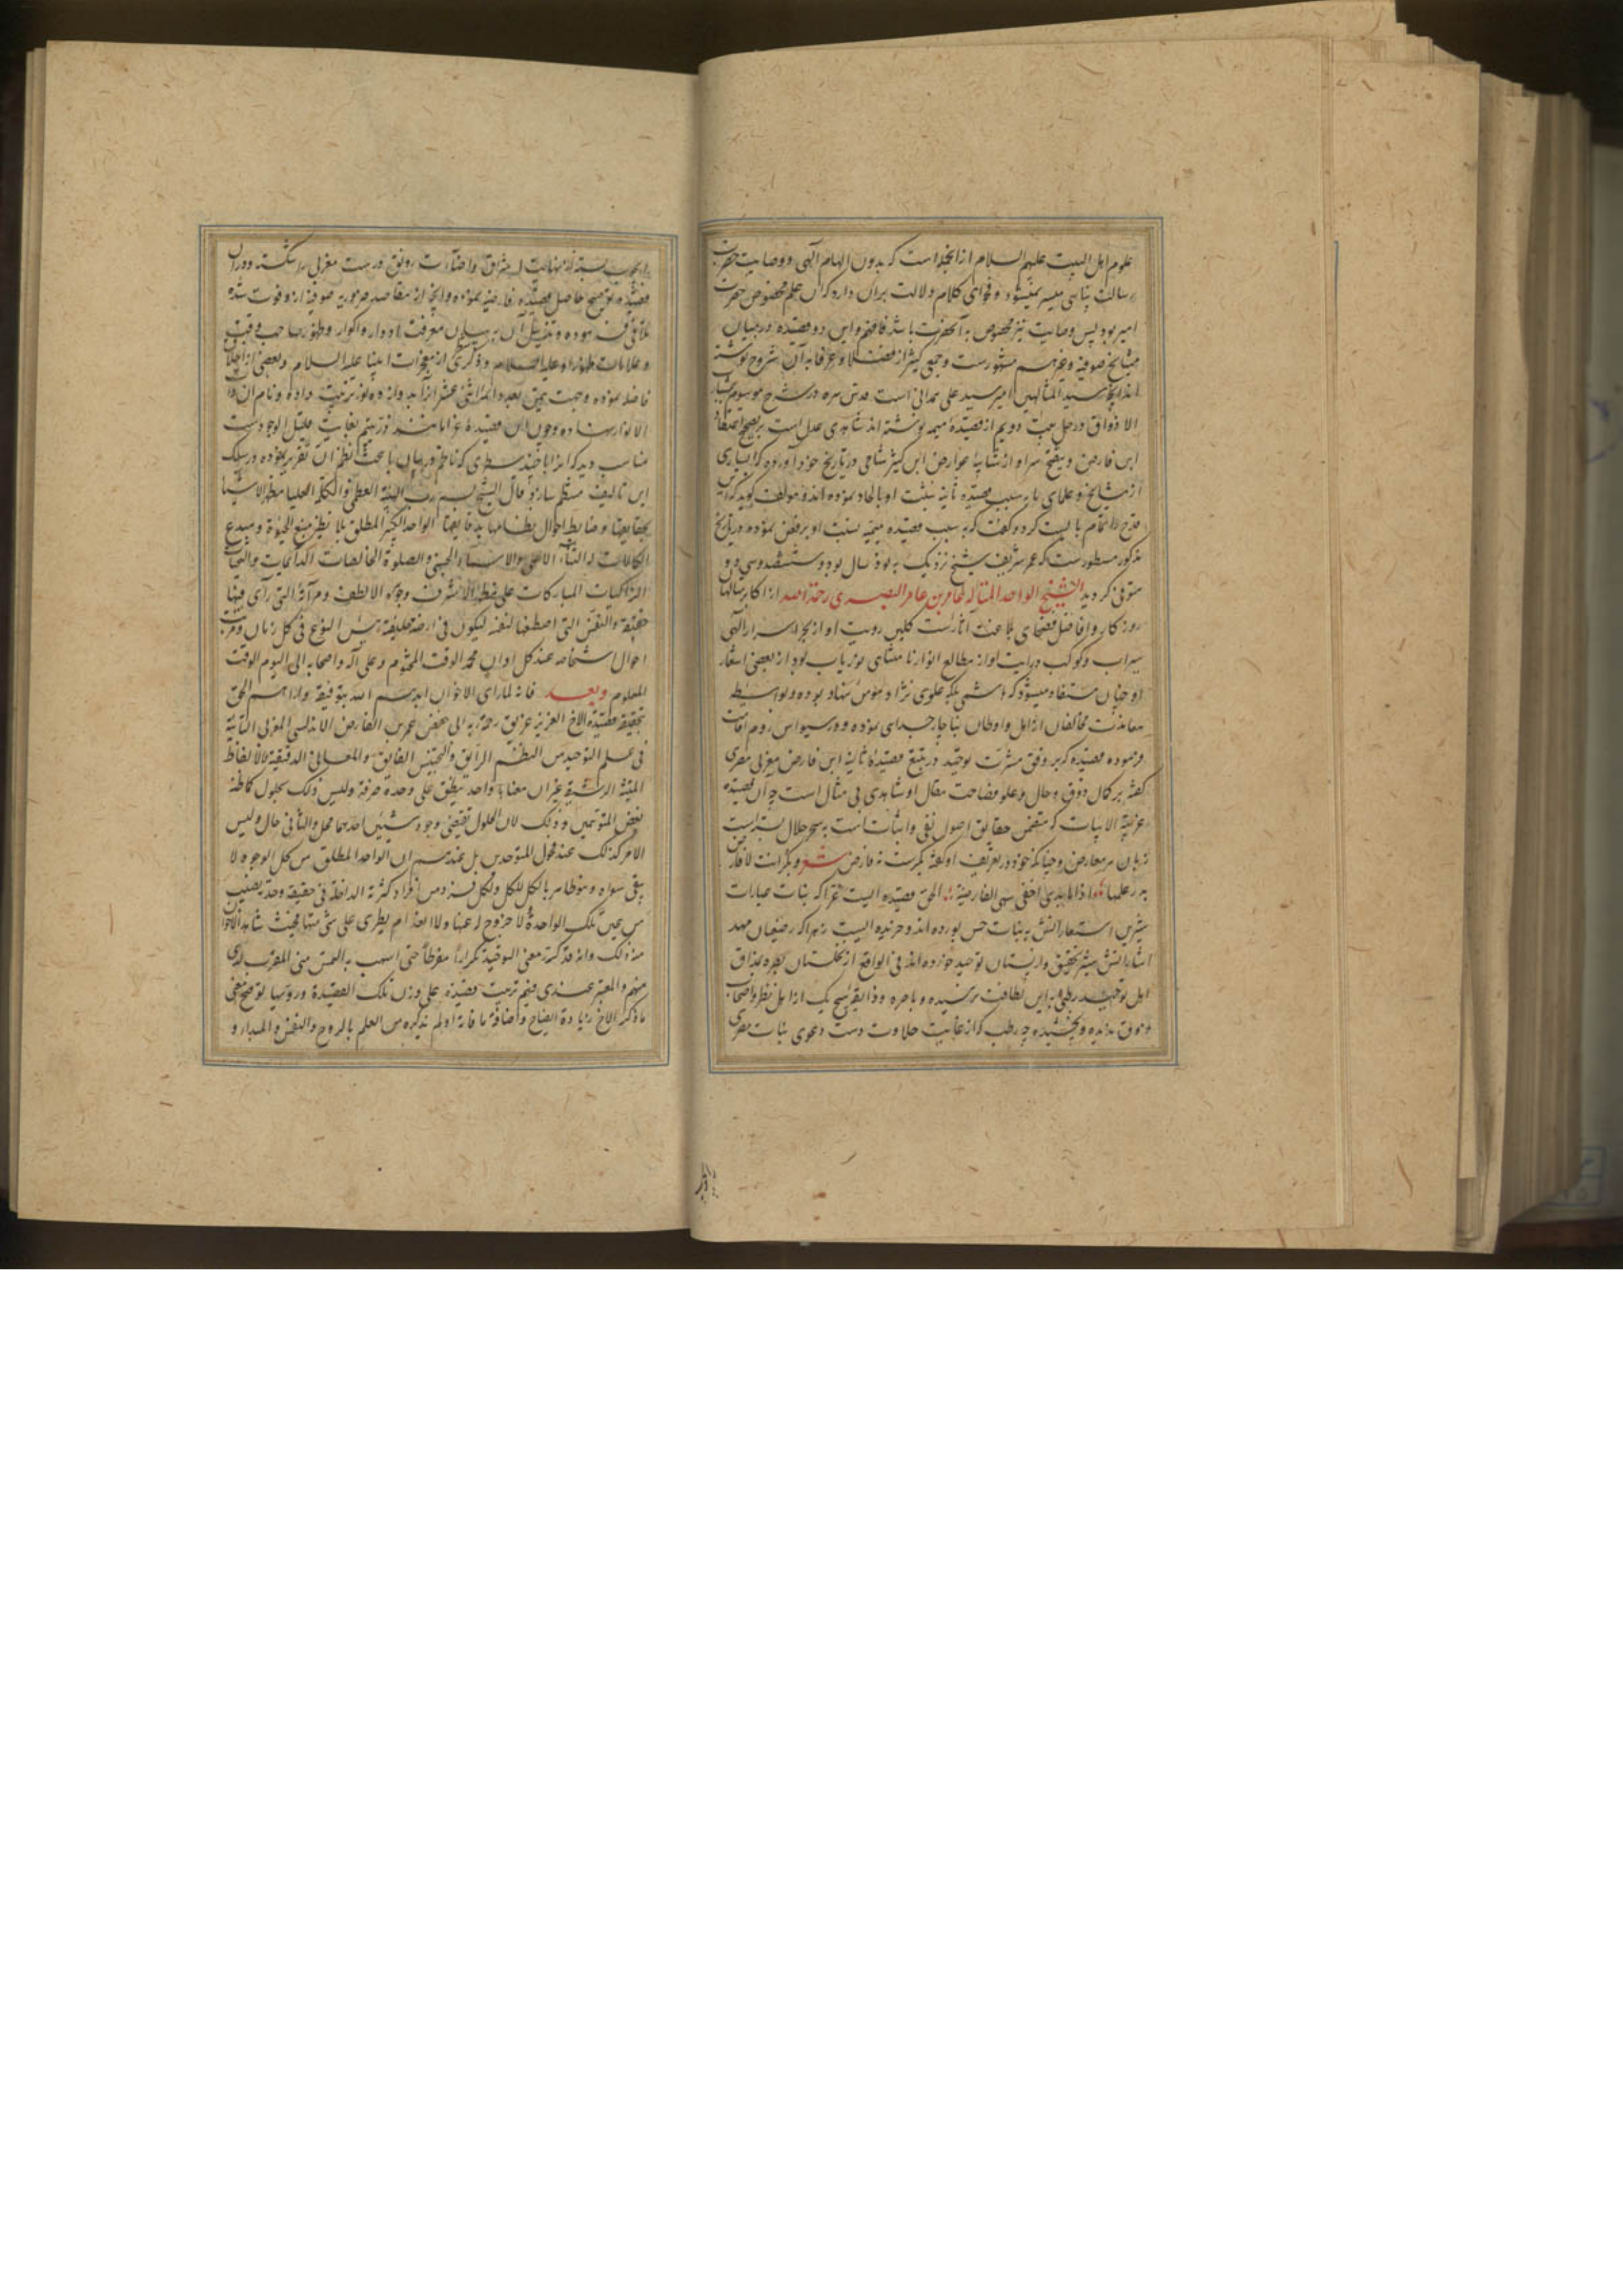 علوم اهل البیت علیهم السلام از انجمله است که بدون الهام الهی و وصایت حضرت
رسالت پناهی میسر نمیشود و فحوای کلام دلالت بران دارد که آن علم مخصوص حضرت
امیر بود پس وصایت نیز مخصوص به آنحضرت باشد فافهم و این دو قصیده در میان
مشایخ صوفیه و غیرهم مشهورست و جمعی کثیر از فضلا و عرفا به آن شروح نوشته
اند انچه سید المتالهین امیر سید علی همدانی است قدس سره در شرح موسوم بمشارب
الاذواق در حل بیت دویم از قصیده میمیه نوشته اند شاهدی عدل است بر صحت اعتقاد
ابن فارض و ابن کثیر شامی در تاریخ خود آورده که بسیاری
از مشایخ و علمای ما به سبب قصیده تائیه نسبت او بالحاد نموده اند و مؤلف گوید که
قدح را تمام بایست کرد و گفت که به سبب قصیده میمیه نسبت او برفض نموده در تاریخ
مذکور مسطور است که عمر شریف شیخ نزدیک به نود سال بود و ششصد و سی و دو
متوفی گردید الشیخ الواحد المتاله عامر بن عامر البصری رحمة الله از اکابر سالها
روزکار و افاضل فصحای بلاغت اثارست کلیم رویت او از بحر اسرار الهی
سیراب و کوکب درایت او از مطالع انوار نامتناهی نور یاب بود از بعضی اشعار
او چنان مستفاد میشود که هاشمی بلکه علوی نژاد و مؤمن نهاد بوده و بواسطه
معاندت مخالفان از اهل و اوطان ناچار جدای نموده و در سیواس روم اقامت
فرموده قصیده که بر وفق مشرب توحید در تتبع قصیده تائیه ابن فارض مغربی مصری
گفته بر کمال ذوق و حال و علو فصاحت مقال او شاهدی بی مثال است چه آن قصیده
غریبة الابیات که متضمن حقایق اصول نفی و اثبات است به سحر حلال
زبان هر معارض و چنانکه خود در تعریف او گفته بکرست نه فارض شعر و بکر اتت لا فارض
اذا ما بدی اخفی سهی الفارضیة الحق قصیده ایست غرا که بنات عبارات
شیرین استعاراتش به نبات حسن پرورده اند و خریده ایست زهرا که رضیعان مهد
اشاراتش شیر تحقیق و از پستان توحید خورده اند فی الواقع از نخلستان بصره بمذاق
اهل توحید رطبی به این لطافت نرسیده و باصره و ذایقه هیچ یک از اهل نظر و اصحاب
ذوق ندیده و نچشیده چه رطب که از غایت حلاوت دست دعوی نبات مصری
را بچوب بسته از نهایت اشراق و اضائت رونق در بیت مغربی را شکسته و در آن
قصیده توضیح حاصل قصیده فارضیه نموده و انچه از مقاصد ضروریه صوفیه ازو فوت شده
تلافی آن نموده و تذییل آن به بیان معرفت ادوار و اکوار و ظهور صاحب وقت
و علامات ظهور او علیه السلام و ذکری از معجزات انبیا علیه السلام و بعضی از اخلاق
فاضله نموده و جهت تیمن بعدد ائمه اثنی عشر انرا بدوازده نور ترتیب داده و نام آن ذات
الانوار نهاده و چون این قصیده غرا مانند در یتیم بغایت قلیل الوجودست
مناسب دید که خطبه با چند سطری که ناظم در بیان باعث نظم آن تقریر نموده در سلک
این تالیف منتظم سازد قال الشیخ بسم رب الهیة العظمی و الکلمة العلیا مظهر الاشیا
بحقایقها و ضابط احوال نظامها بدقایقها الواحد الکبیر المطلق بلا نظیر منبع الحیوة و مبدع
الکاینات له الثناء الاسنی و الاسماء الحسنی و الصلوة الخالصات الدائمات و التحیات
الزاکیات المبارکات علی مظهره الاشرف و جوهره الالطف و مرآته التی رآی فیها
حقیقته و النفس التی اصطفاها لنفسه لیکون فی ارضه خلیفة من النوع فی کل زمان و مرتب
احوال اشخاصه عند کل اوان محمد الوقت المحتوم و علی آله و اصحابه الی الیوم الوقت
المعلوم و بعد فانه لما رای الاخوان ایدهم الله بتوفیقه و اراهم الحق
بتحقیقه قصیدة الاخ العزیز عریق ابی حفص عمر بن الفارض الاندلسی المغربی التائیة
فی علم التوحید من النظم الرایق و التجنیس الفایق و المعانی الدقیقة و الالفاظ
الرشیقة غیر ان معناها واحد ینطق علی وحدة صرفة و لیس ذلک بحلول کما ظنه
بعض المتوهمین و ذلک لان الحلول یقتضی وجود شیئین احدهما محل و الثانی حال و لیس
الامر کذلک عند فحول الموحدین بل عندهم ان الواحد المطلق من کل الوجوه لا
یبقی سواه و هو ظاهر بالکل للکل و لکل فرد من افراد کثرته الداخلة فی حقیقة وحدته نصیب
من عین تلک الواحدة لا خروج له عنها و لا انعدام یطری علی شیء منها فحیث شاهد الاخوان
منه ذلک و انه قد کرر معنی التوحید تکرارا مفرطا حتی اسهب به التمس منی المقرب لدی
منهم و المعتبر عندی فیهم ترتیب قصیدة علی وزن تلک القصیدة و رویها توضح معنی
ما ذکره الاخ زیادة ایضاح و اضافة ما فاته او لم یذکره من العلم بالروح و النفس و المبدا و